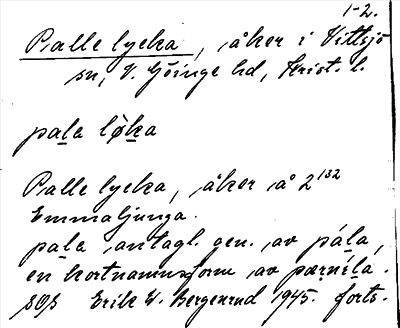 1-2.
Palle lycka, åker i Vittsjö
sn, V. Göinge hd, Krist. l.
pala løka
Palle lycka, åker å 2¹³²
Emmaljunga.
pala antagl. gen. av pála,
en kortnamnsform av pærníla.
sOs Erik W. Bergenrud 1945. forts.